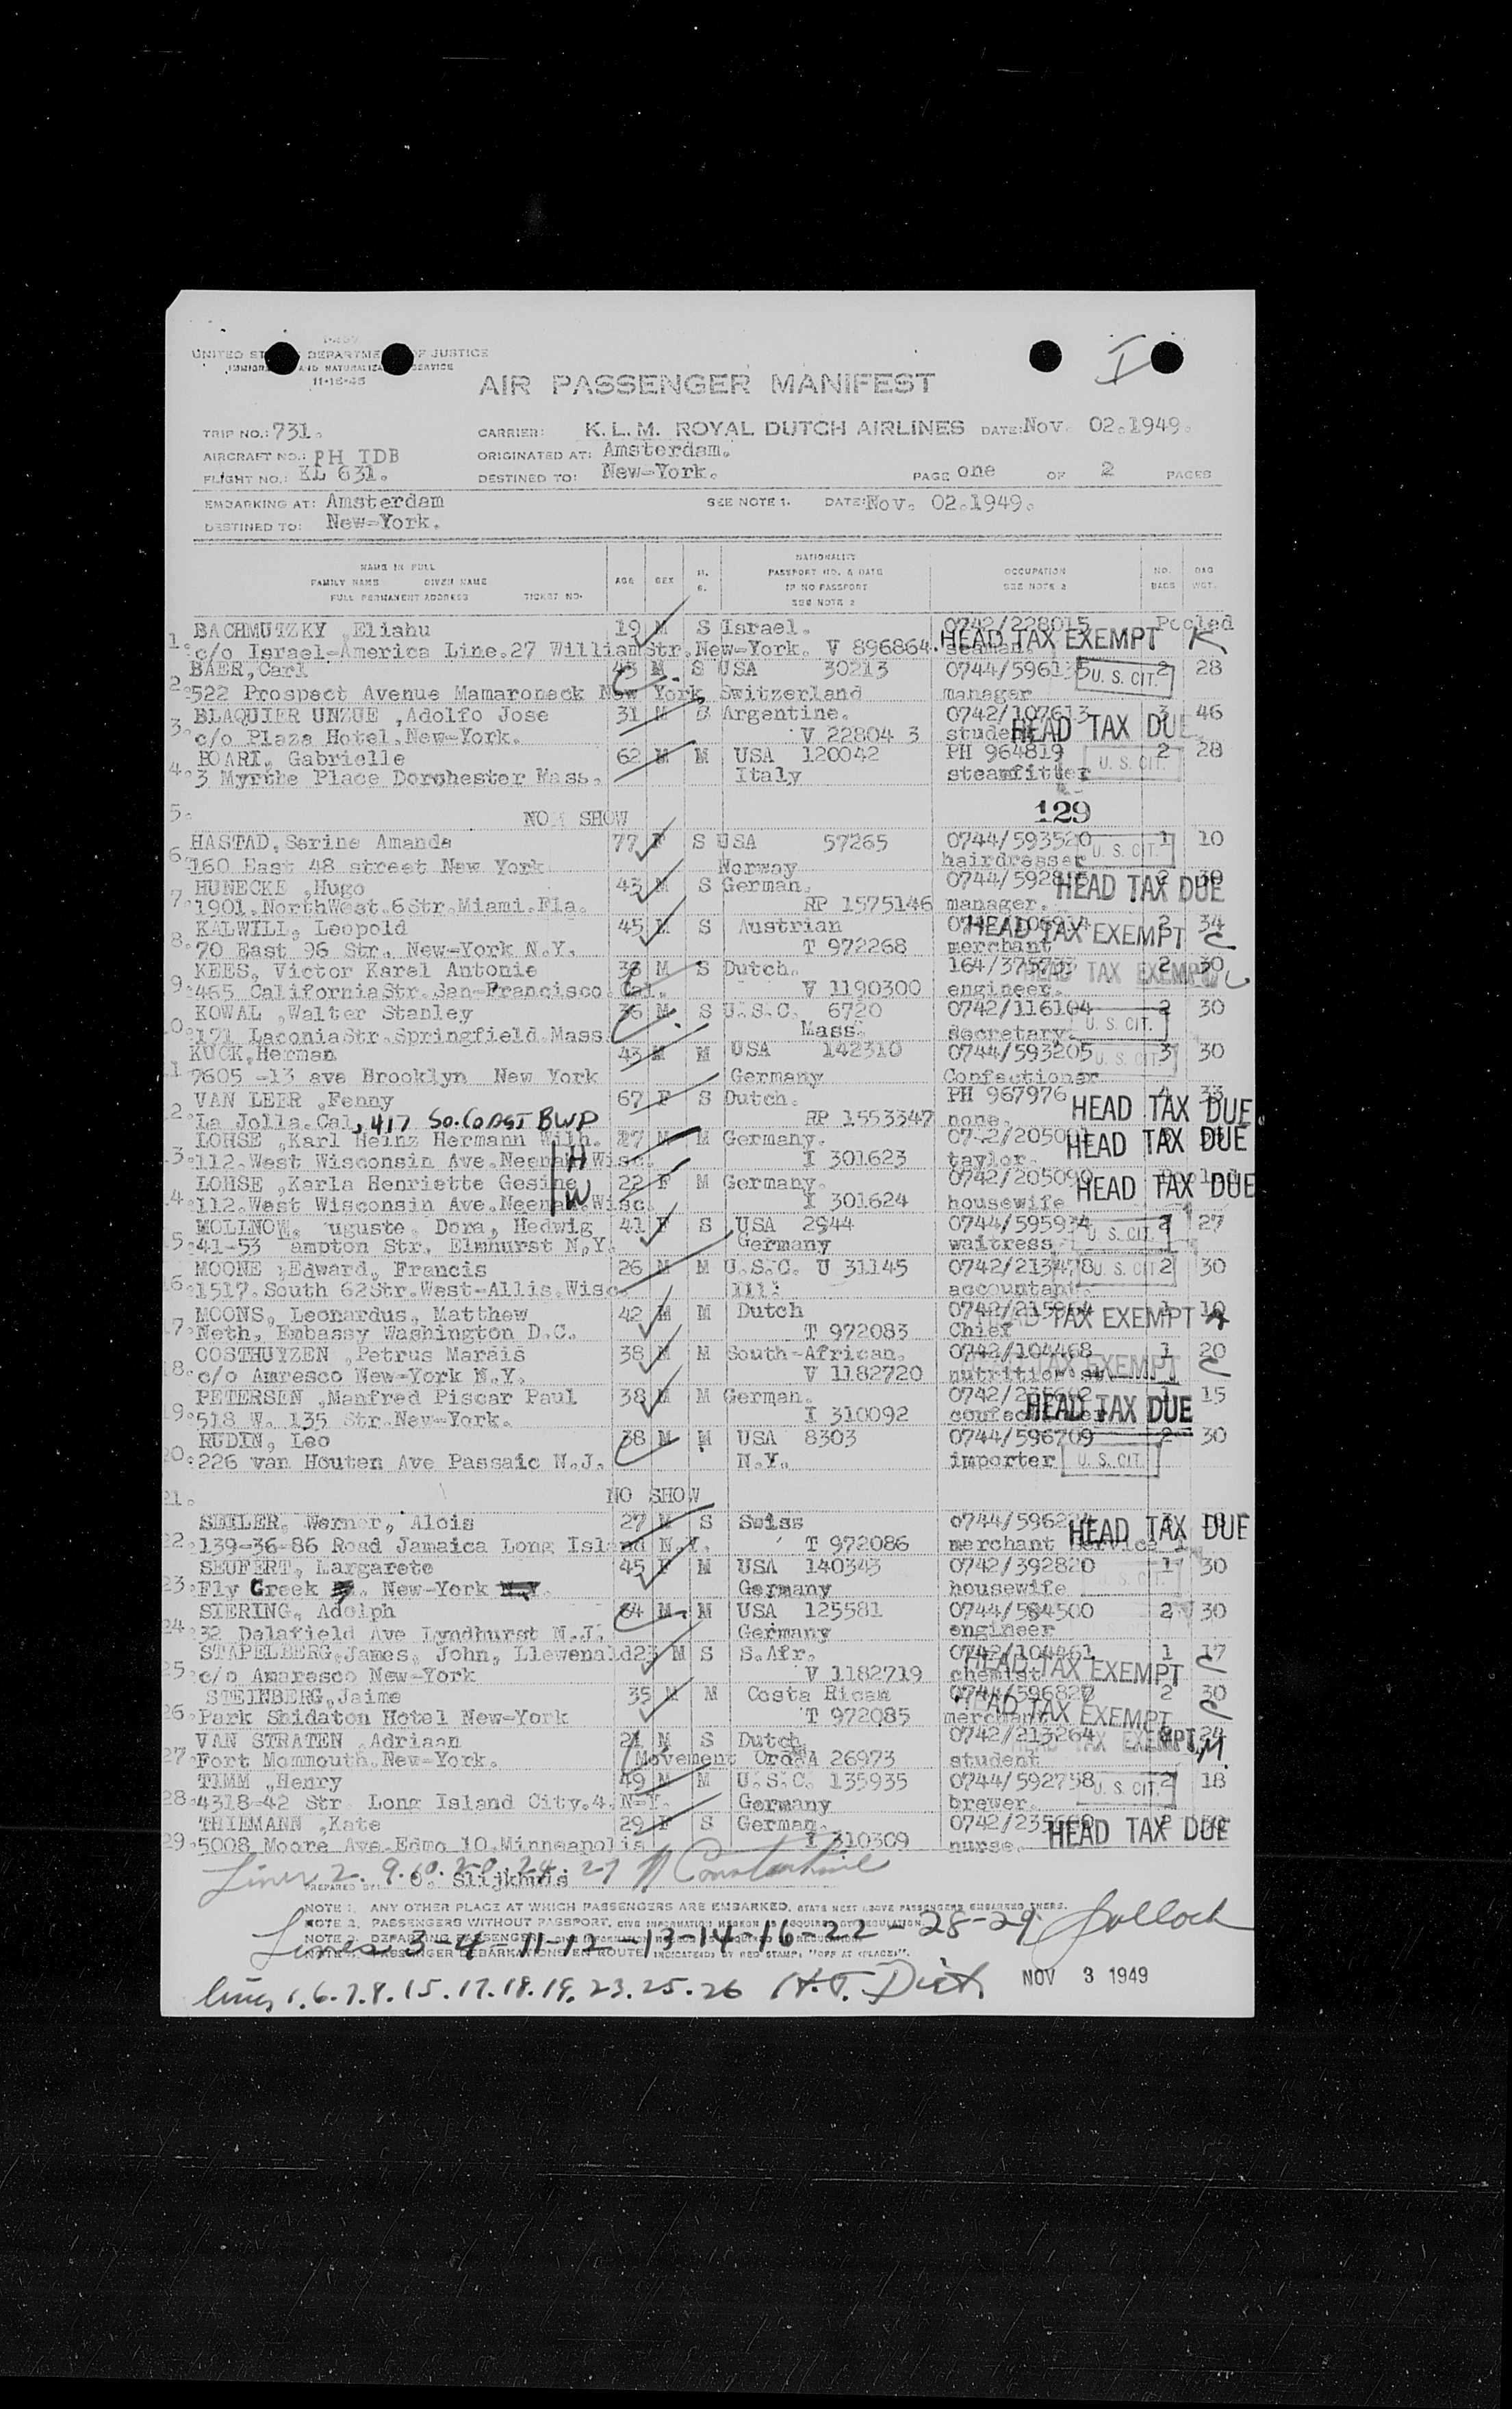 I
UNITED ST DEPARTME OF JUSTICE
AND NATURALIZA SERVICE
11-15-45
AIR PASSENGER MANIFEST
TRIP NO.: 731. CARRIER: K.L.M. ROYAL DUTCH AIRLINES DATE: Nov. 02.1949.
AIRCRAFT NO.: PH TDB ORIGINATED AT: Amsterdam.
FLIGHT NO.: KL 631. DESTINED TO: New-York. PAGE one OF 2 PAGES
EMBARKING AT: Amsterdam SEE NOTE 1. DATE: Nov. 02.1949.
DESTINED TO: New-York.
NAME IN FULL NATIONALITY
FAMILY NAME GIVEN NAME AGE SEX PASSPORT NO. & DATE OCCUPATION NO. BAG
FULL PERMANENT ADDRESS TICKET NO. IF NO PASSPORT SEE NOTE 2 BAGS WGT.
SEE NOTE 2
BACHMUTZKY ,Eliahu 19 M S Israel. 0742/228015 Pooled
1. c/o Israel-America Line.27 William Str.New-York. V 896864. seaman. HEAD TAX EXEMPT K
BAER,Carl 43 M S USA 30213 0744/596135 2 28
2. 522 Prospect Avenue Mamaroneck New York, Switzerland manager U. S. CIT.
BLAQUIER UNZUE ,Adolfo Jose 31 M S Argentine. 0742/107613 3 46
3. c/o Plaza Hotel.New-York. V 22804 3 student HEAD TAX DUE
BOARI, Gabrielle 62 M M USA 120042 PH 964819 2 28
4. 3 Myrthe Place Dorchester Mass. Italy steamfitter U. S. CIT.
5. NO SHOW 129
HASTAD,Serine Amanda 77 F S USA 57265 0744/593520 1 10
6. 160 East 48 street New York Norway hairdresser U. S. CIT.
HUNECKE ,Hugo 43 M S German. 0744/592 HEAD TAX DUE
7. 1901.NorthWest.6Str.Miami.Fla. RP 1575146 manager.
KALWILL, Leopold 45 M S Austrian 2 34
8. 70 East 96 Str. New-York N.Y. T 972268 merchant HEAD TAX EXEMPT C
KEES, Victor Karel Antonie 36 M S Dutch. 164/3757 2 30
9. 465 CaliforniaStr.San-Francisco.Cal. V 1190300 engineer. HEAD TAX EXEMPT
KOWAL ,Walter Stanley 36 M S U.S.C. 6720 0742/116104 2 30
0. 171 LaconiaStr.Springfield.Mass. Mass. secretary U. S. CIT.
KUCK,Herman 43 M M USA 142310 0744/593205 3 30
1 7605 -13 ave Brooklyn New York Germany Confectioner U. S. CIT.
VAN LEER ,Fenny 67 F S Dutch. PH 967976 4 33
2. La Jolla.Cal, 417 So.COAST BWP RP 1553347 none. HEAD TAX DUE
LOHSE ,Karl Heinz Hermann Wilh. 27 M M Germany. HEAD TAX DUE
3. 112.West Wisconsin Ave.Neenah H Wisc. I 301623 taylor.
LOHSE ,Karla Henriette Gesine 22 F M Germany. 0742/205090 HEAD TAX DUE
4. 112.West Wisconsin Ave.Neenah W Wisc. I 301624 housewife
MOLLNOW, uguste. Dora, Hedwig 41 F S USA 2944 0744/595934 2 27
5. 41-53 ampton Str. Elmhurst N.Y. Germany waitress U. S. CIT.
MOONE ,Edward, Francis 26 M M U.S.C. U 31145 0742/213478 U. S. CIT 2 30
6. 1517.South 62Str.West-Allis.Wisc. Ill. accountant.
MOONS, Leonardus, Matthew 42 M M Dutch 1 10
7. Neth. Embassy Washington D.C. T 972083 Chief HEAD TAX EXEMPT
OOSTHUYZEN ,Petrus Marais 38 M M South-African. 0742/104468 1 20
8. c/o Amresco New-York N.Y. V 1182720 HEAD TAX EXEMPT C
PETERSEN ,Manfred Piscar Paul 38 M M German. 1 15
19. 518 W. 135 Str.New-York. I 310092 HEAD TAX DUE
RUDIN, Leo 38 M M USA 8303 0744/596709 2 30
20. 226 van Houten Ave Passaic N.J. N.Y. importer U. S. CIT.
21. NO SHOW
SEILER, Werner, Alois 27 M S Swiss HEAD TAX DUE
22. 139-36-86 Road Jamaica Long Island N.Y. T 972086 merchant service
SEUFERT, Largarete 45 F M USA 140343 0742/392820 1 30
23. Fly Creek . New-York Germany housewife
SIERING, Adolph 64 M M USA 125581 0744/584500 2 30
24. 32 Delafield Ave Lyndhurst N.J. Germany engineer
STAPELBERG,James, John, Llewenald 23 M S S.Afr. 0742/104461 1 17
25. c/o Amaresco New-York V 1182719 chemist HEAD TAX EXEMPT C
STEINBERG,Jaime 35 M M Costa Rican 0744/596820 2 30
26. Park Shidaton Hotel New-York T 972085 merchant HEAD TAX EXEMPT C
VAN STRATEN ,Adriaan 21 M S Dutch 0742/213264 24
27. Fort Mommouth.New-York. Movement Ord. A 26973 student HEAD TAX EXEMPT, M
TIMM ,Henry 49 M M U.S.C. 135935 0744/592758 U. S. CIT. 2 18
28. 4318-42 Str Long Island City.4.N-Y. Germany brewer.
THIEMANN ,Kate 29 F S German.
29. 5008 Moore Ave.Edmo 10.Minneapolis I 310309 nurse. HEAD TAX DUE
Lines 2. 9. 10. 20. 24. 27 Constantine
PREPARED BY: Slijkhuis
NOTE 1. ANY OTHER PLACE AT WHICH PASSENGERS ARE EMBARKED, STATE NEXT ABOVE PASSENGERS EMBARKED THERE.
NOTE 2. PASSENGERS WITHOUT PASSPORT, GIVE INFORMATION HEREON AS REQUIRED BY REGULATION.
Lines 3-4-11-12-13-14-16-22-28-29. Pollock
lines 1.6.7.8.15.17.18.19.23.25.26 H.J. Dick NOV 3 1949